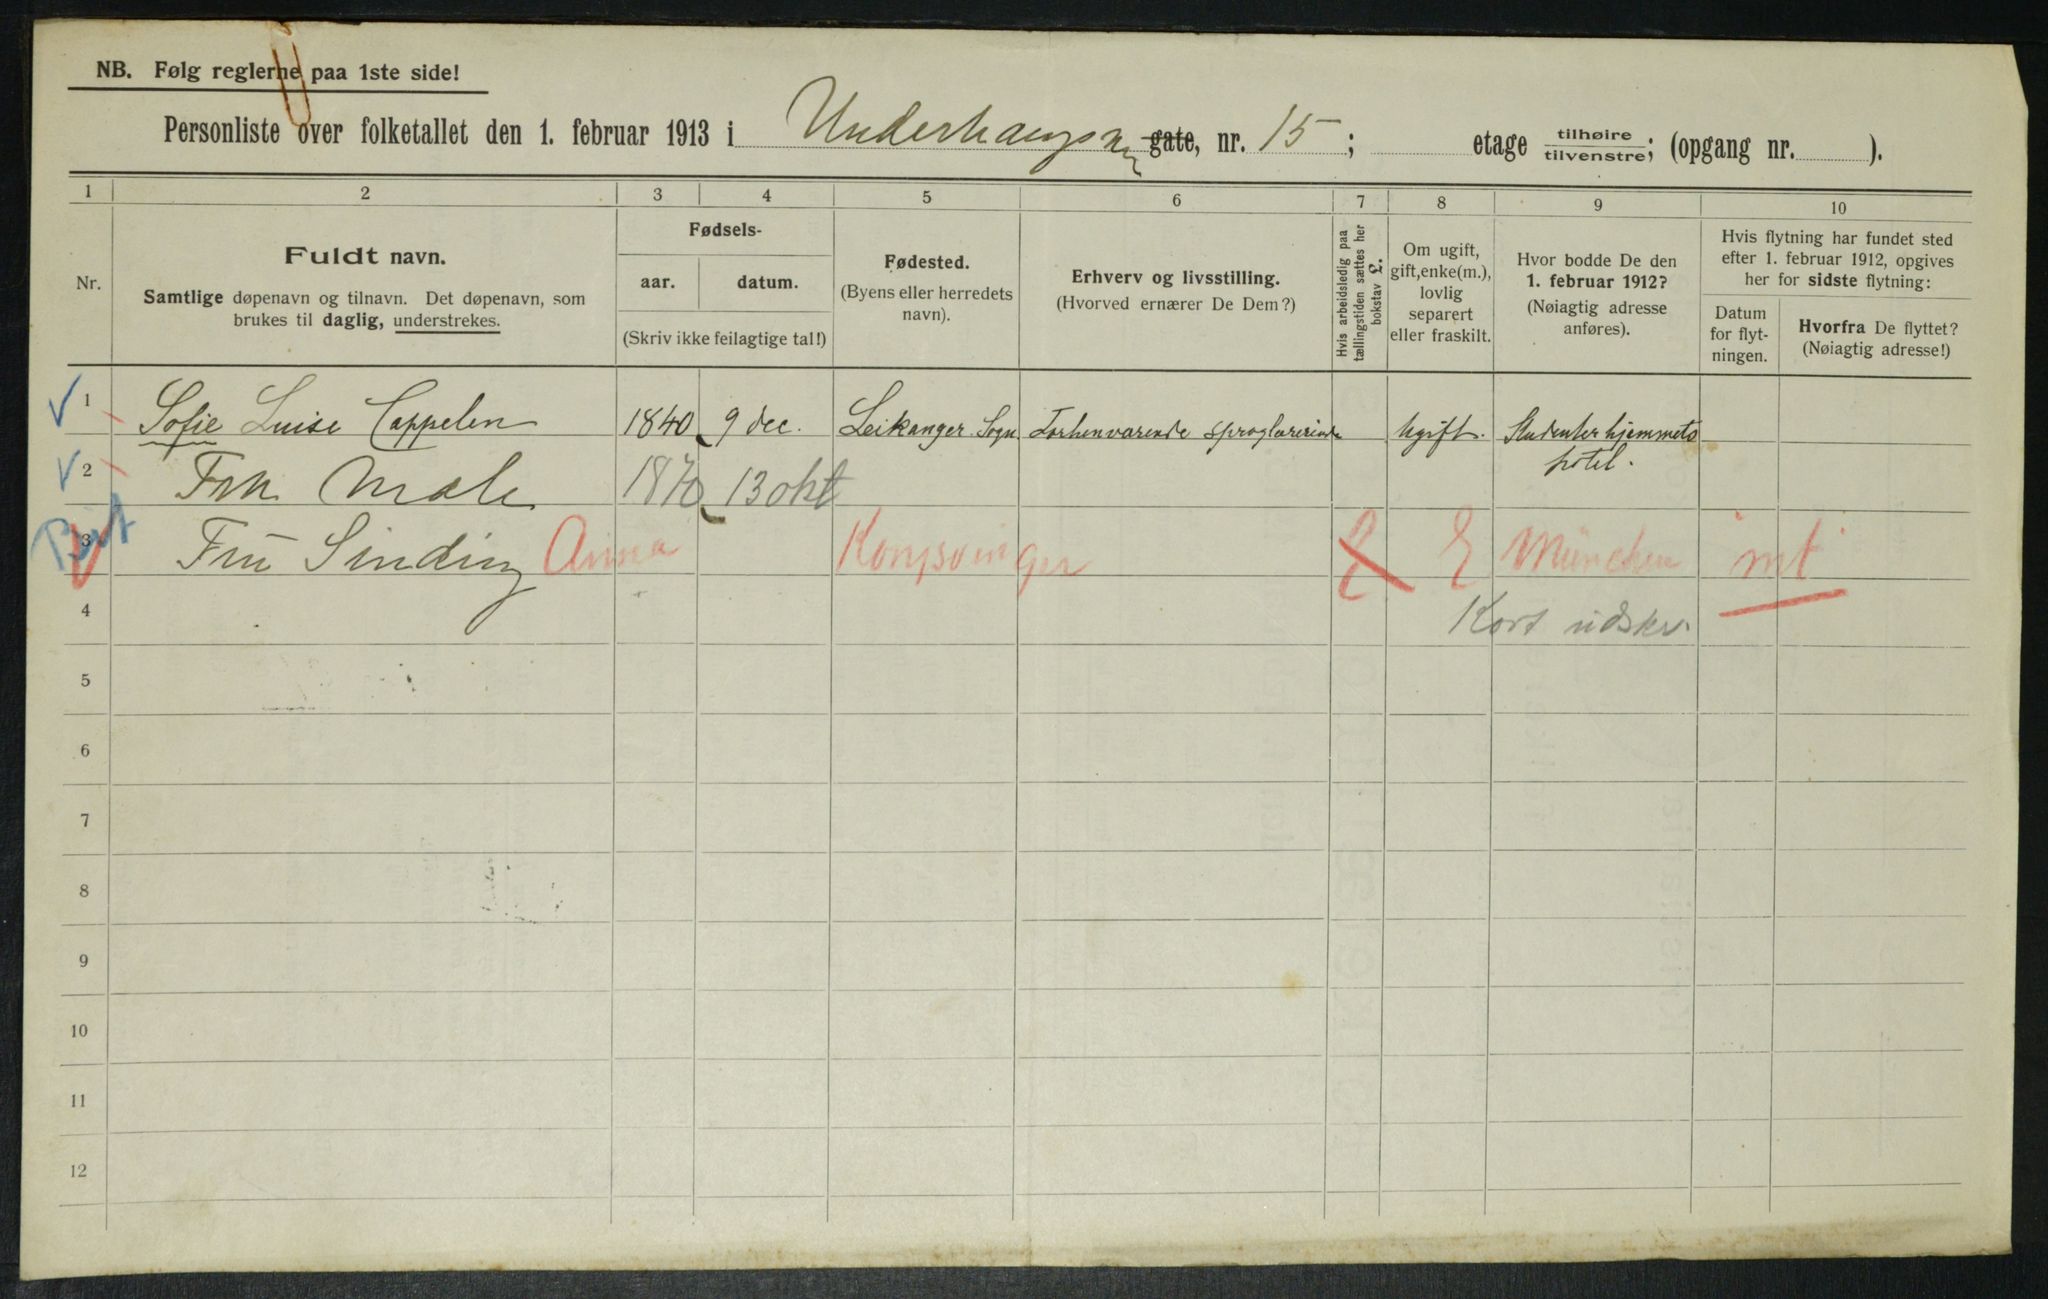 NB. Følg reglerne paa 1ste side!
Personliste over folketallet den 1. februar 1913 i Underhaugsvn gate, nr. 15; etage tilhøire tilvenstre; (opgang nr. ).
1 2 3 4 5 6 7 8 9 10
Nr.
Fuldt navn.
Samtlige døpenavn og tilnavn. Det døpenavn, som
brukes til daglig, understrekes.
Fødsels-
aar. datum.
(Skriv ikke feilagtige tal!)
Fødested.
(Byens eller herredets
navn).
Erhverv og livsstilling.
(Hvorved ernærer De Dem?)
Hvis arbeidsledig paa
tællingstiden sættes her
bokstav L.
Om ugift,
gift, enke(m.),
lovlig
separert
eller fraskilt.
Hvor bodde De den
1. februar 1912?
(Nøiagtig adresse
anføres).
Hvis flytning har fundet sted
efter 1. februar 1912, opgives
her for sidste flytning:
Datum
for flyt-
ningen.
Hvorfra De flyttet?
(Nøiagtig adresse!)
1 Sofie Luise Cappelen 1840 9 dec. Leikanger Sogn Forhenværende sproglærerinde Ugift. Studenterhjemmets
hotel.
2 Frk. Mæle 1870 13 okt
3 Fru Sinding Anna Kongsvinger E München int
4 Kort udskr.
5
6
7
8
9
10
11
12